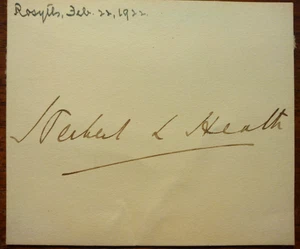 Rosyth, Feb. 22, 1922.
Herbert L Heath